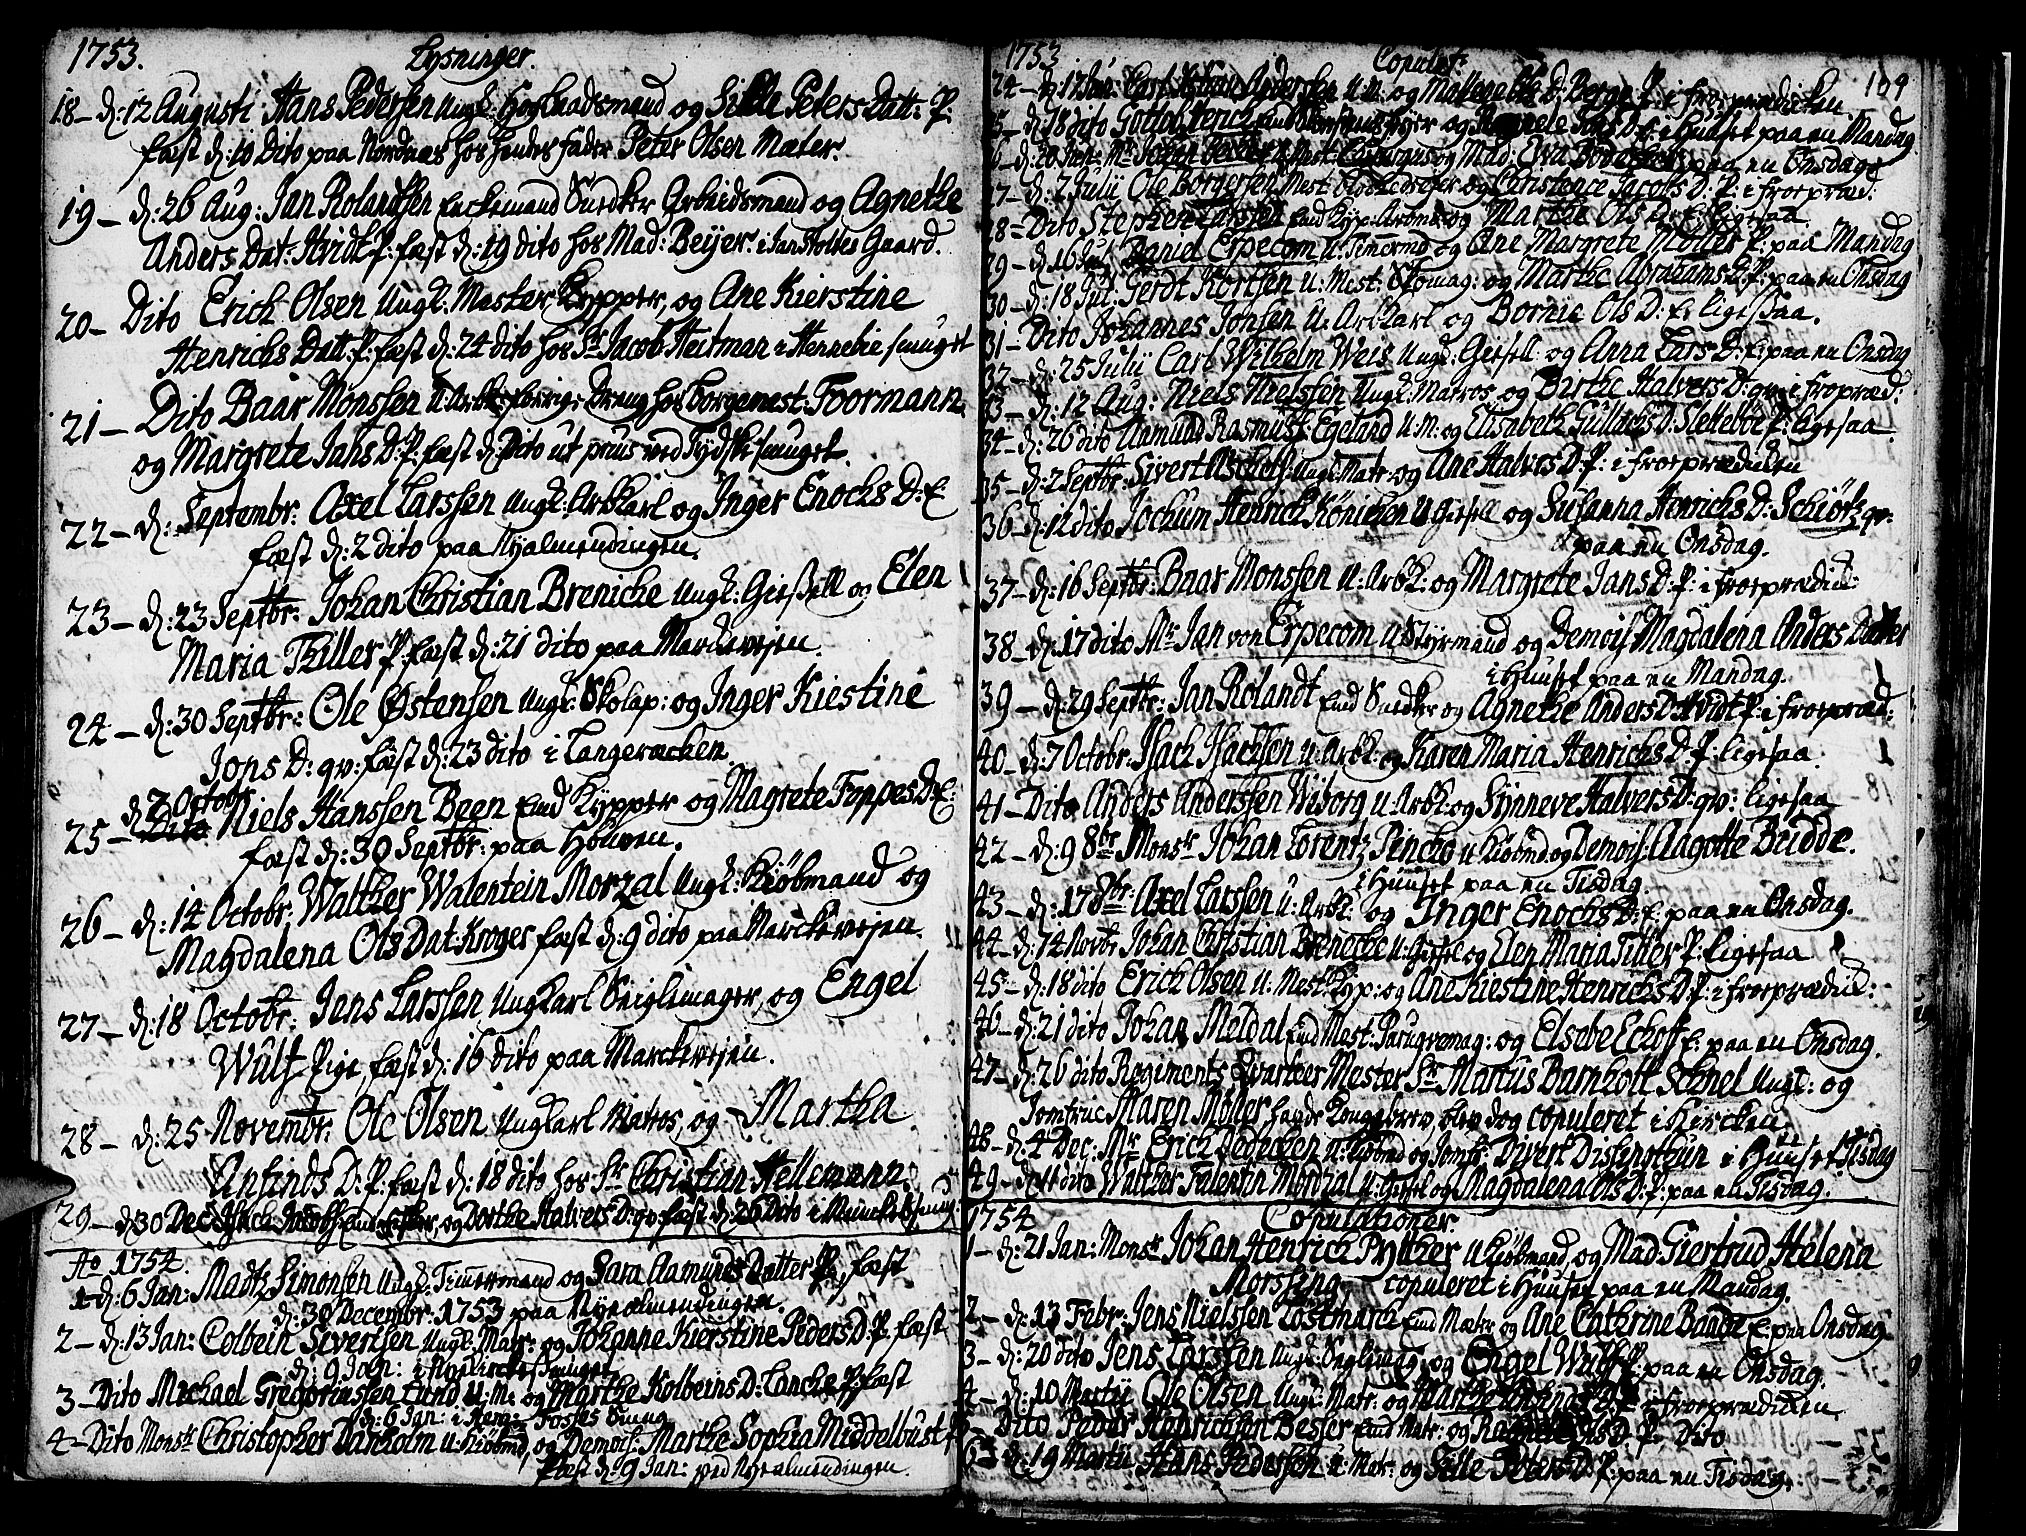 1753. Lysninger.
18 – d: 12 Augusti Hans Pedersen Ungk: og Sille Peters Datt: P.
fæst d: 10 Dito paa Nordnæs hos hendes fader Peter Olsen Mæler.
19 – d: 26 Aug: Jan Rolandsen Enckemand Snedker Arbeidsmand og Agnethe
Anders Dat: Hvidt P: fæst d: 19 dito hos Mad: Beijer. i Jan Stoltes Gaard.
20 – Dito Erich Olsen Ungk: Mæster Kypper, og Ane Kierstine
Henrichs Datt: P: fæst d: 24 dito hos Sr Jacob Heitman i Henneke smuget
21 – Dito Baar Monssen U: Arbk: Dreng hos borgemest: Foormann
og Margrete Jahs D: P: fæst d: Dito ut prius ved Tydskesmuget.
22 – d: Septembr: Axel Larssen Ungk: Arbkarl og Inger Enochs D: E
fæst d: 2 dito paa Nyalmendingen.
23 – d: 23 Septbr: Johan Christian Brenicke Ungk: Giesell og Elen
Maria Thiller P: fæst d: 21 dito paa Marckevejen.
24 – d: 30 Septbr: Ole Østensen Ungk: Skolap: og Inger Kiestine
Jons D: qv: fæst d: 23 dito i Langeræcken.
d 7 Octobr
25 – Dito Niels Hanssen Been Emd Kypper og Magrete Foppes D: E:
fæst d: 30 Septbr: paa Houven.
26 – d: 14 Octobr: Walther Walentein Morzal Ungk: Kiöbmand og
Magdalena Ols Dat: Kroger fæst d: 9 dito paa Marckevejen.
27 – d: 18 Octobr: Jens Larssen Ungkarl Seiglmager, og Engel
Wultz Pige, fæst d: 16 dito paa Marckevejen.
28 – d: 25 Novembr: Ole Olsen Ungkarl Matros, og Martha
Anfinds D: P: fæst d: 18 dito hos Sr Christian Hellemann.
29 – d 30 Dec og Dorthe Halvers D: qv fæst d: 26 Dito i
Ao 1754.
1 – d: 6 Jan: Madtz Simonsen Ungk: Timermand og Sara Aamunds Datter P:, fæst
d: 30 Decembr: 1753 paa Nyealmendingen.
2 – d: 13 Jan: Colbein Sivertsen Ungk: Matr: og Johanne Kierstine Peders D: P: fæst
d: 9 Jan: i
3 – Dito Michael Gregoriussen Lund U: M: og Marthe Kolbeins D: Lanche P: fæst
d: 6 Jan: i Smug
4 – Dito Monsr Christopher Danholm U: Kiöbmd, og Demois: Marthe Sophia Middelbust
Fæst d: 9 Jan: ved Nyealmendingen.
1753 Copulat: 109
24 – d: 17 Jun: Carl Anderssen U: M: og D: Berge P: i froeprædicken
5 – d: 18 dito Gottlob og i Huuset paa en Mandag.
6 – d: 20 Jun: Mr og Mad: Ewa paa en Onsdag
27 – d: 2 Julii Ole Borgersen Mest: og Christence Jacobs D: P: i froepræd:
28 – Dito Stephen Larssen Emd Kyp: og Marthe Ols D: E: ligesaa
29 – d: 16 Jul Daniel Erpecom U: Timermd og Ane Margrete Möller P: paa Mandag
30 – d: 18 Jul: Gerdt Kortsen U: Mest: Skomag: og Marthe Abrahams D: P: paa en Onsdag
31 – Dito Johannes Jonsen U: Arbkarl og Bornie Ols D: E: ligesaa.
32 – d: 25 Julii Carl Wilhelm Weis Ungk: Giesell og Anna Lars D: E: paa en Onsdag
33 – d: 12 Aug: Niels Nielssen Ungk: Matros, og Birthe Halvers D: qv: i froepræd:
34 – d: 26 dito Aamund Rasmuss: Egeland U: M: og Elisabeth Gullachs D: Slettebøe P: ligesaa.
35 – d: 2 Septbr: Sivert Ungk: Matr: og Ane Halvers D: P: i froeprædicken
36 – d: 12 dito Jochum Henrich Könichen U: Giesell og Susanna Henrichs D: Schiötz qv:
paa en Onsdag.
37 – d: 16 Septbr: Baar Monssen U: Arbk: og Margrete Jans D: P: i froeprædick:
38 – d: 17 dito Mr Jan von Erpecom U: Styrmand og Demois Magdalena Anders Datter
i Huuset paa en Mandag.
39 – d: 29 Septbr: Jan Rolandt Emd Snedker og Agnethe Anders D: Hvidt P: i froepræd:
40 – d: 7 Octobr: Isach Isachsen U: Arbk: og Karen Maria Henrichs D: P: ligesaa.
41 – Dito Anders Anderssen Wiborg U: Arbk: og Synneve Halvers D: qv: ligesaa
42 – d: 9 8br Monsr Johan Lorentz Pincko U: Kiöbmd: og Demois: Aagotte Budde.
i Huuset paa en Tisdag.
43 – d: 17 8br: Axel Larssen U: Arbk: og Inger Enochs D: E: paa en Onsdag.
44 – d: 14 Novbr Johan Christian Brenecke U: Gesel og Elen Maria Tiller P: ligesaa
45 – d: 18 dito Erich Olsen U: Mest: Kyp: og Ane Kiestine Henrichs D: P: i froeprædick:
46 – d: 21 dito Johan Meldal Emd Mest: Parugvemag: og Elsebe Eckoff E: paa en Onsdag.
47 – d: 26 dito Regiments Qvarteer Mester Sr Martus Barnholt Schnel Ungk: og
Jomfrue Maren Möller havde Kongebrev, blev dog copuleret i Kircken
48 – d: 4 Dec: Mr Erich Dedechen U: Kiöbmd og Jomfr: Divert Distingthun i Huuset Tisdag
49 – dito Walther Falentin Mortzal U: Gesel og Magdalena Ols D: P: paa en Tisdag.
1754 Copulationer
1 – d: 21 Jan: Monsr Johan Henrich Pytter U: Kiöbmand, og Mad: Giertrud Helena
Morssing copuleret i Huuset paa en Mandag.
2 – d: 13 Febr: Jens Nielssen Löstmarck Emd Mækr og Ane Catherine Baade E: paa Onsdag
3 – d: 20 dito Jens Larssen Ungk: Seglmag: og Engel Wulf P: paa en Onsdag.
4 – d: 10 Martii Ole Olsen Ungk: Matr: og Marthe P: i froeprædicken.
5 – Dito Peder Henrichsen Besser Emd Matr: og D: P: Dito
6 – d: 19 Martii Hans Pederssen U: Matr: og Sille Peters D: P: paa en Tisdag.